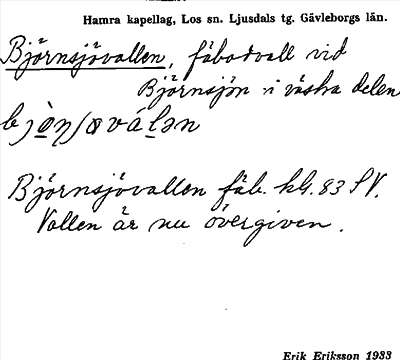 Hamra kapellag, Los sn. Ljusdals tg. Gävleborgs län.
Björnsjövallen, fäbodvall vid
Björnsjön i västra delen
Björnsjövallen fäb. kbl. 83 SV.
Vallen är nu övergiven.
Erik Eriksson 1933